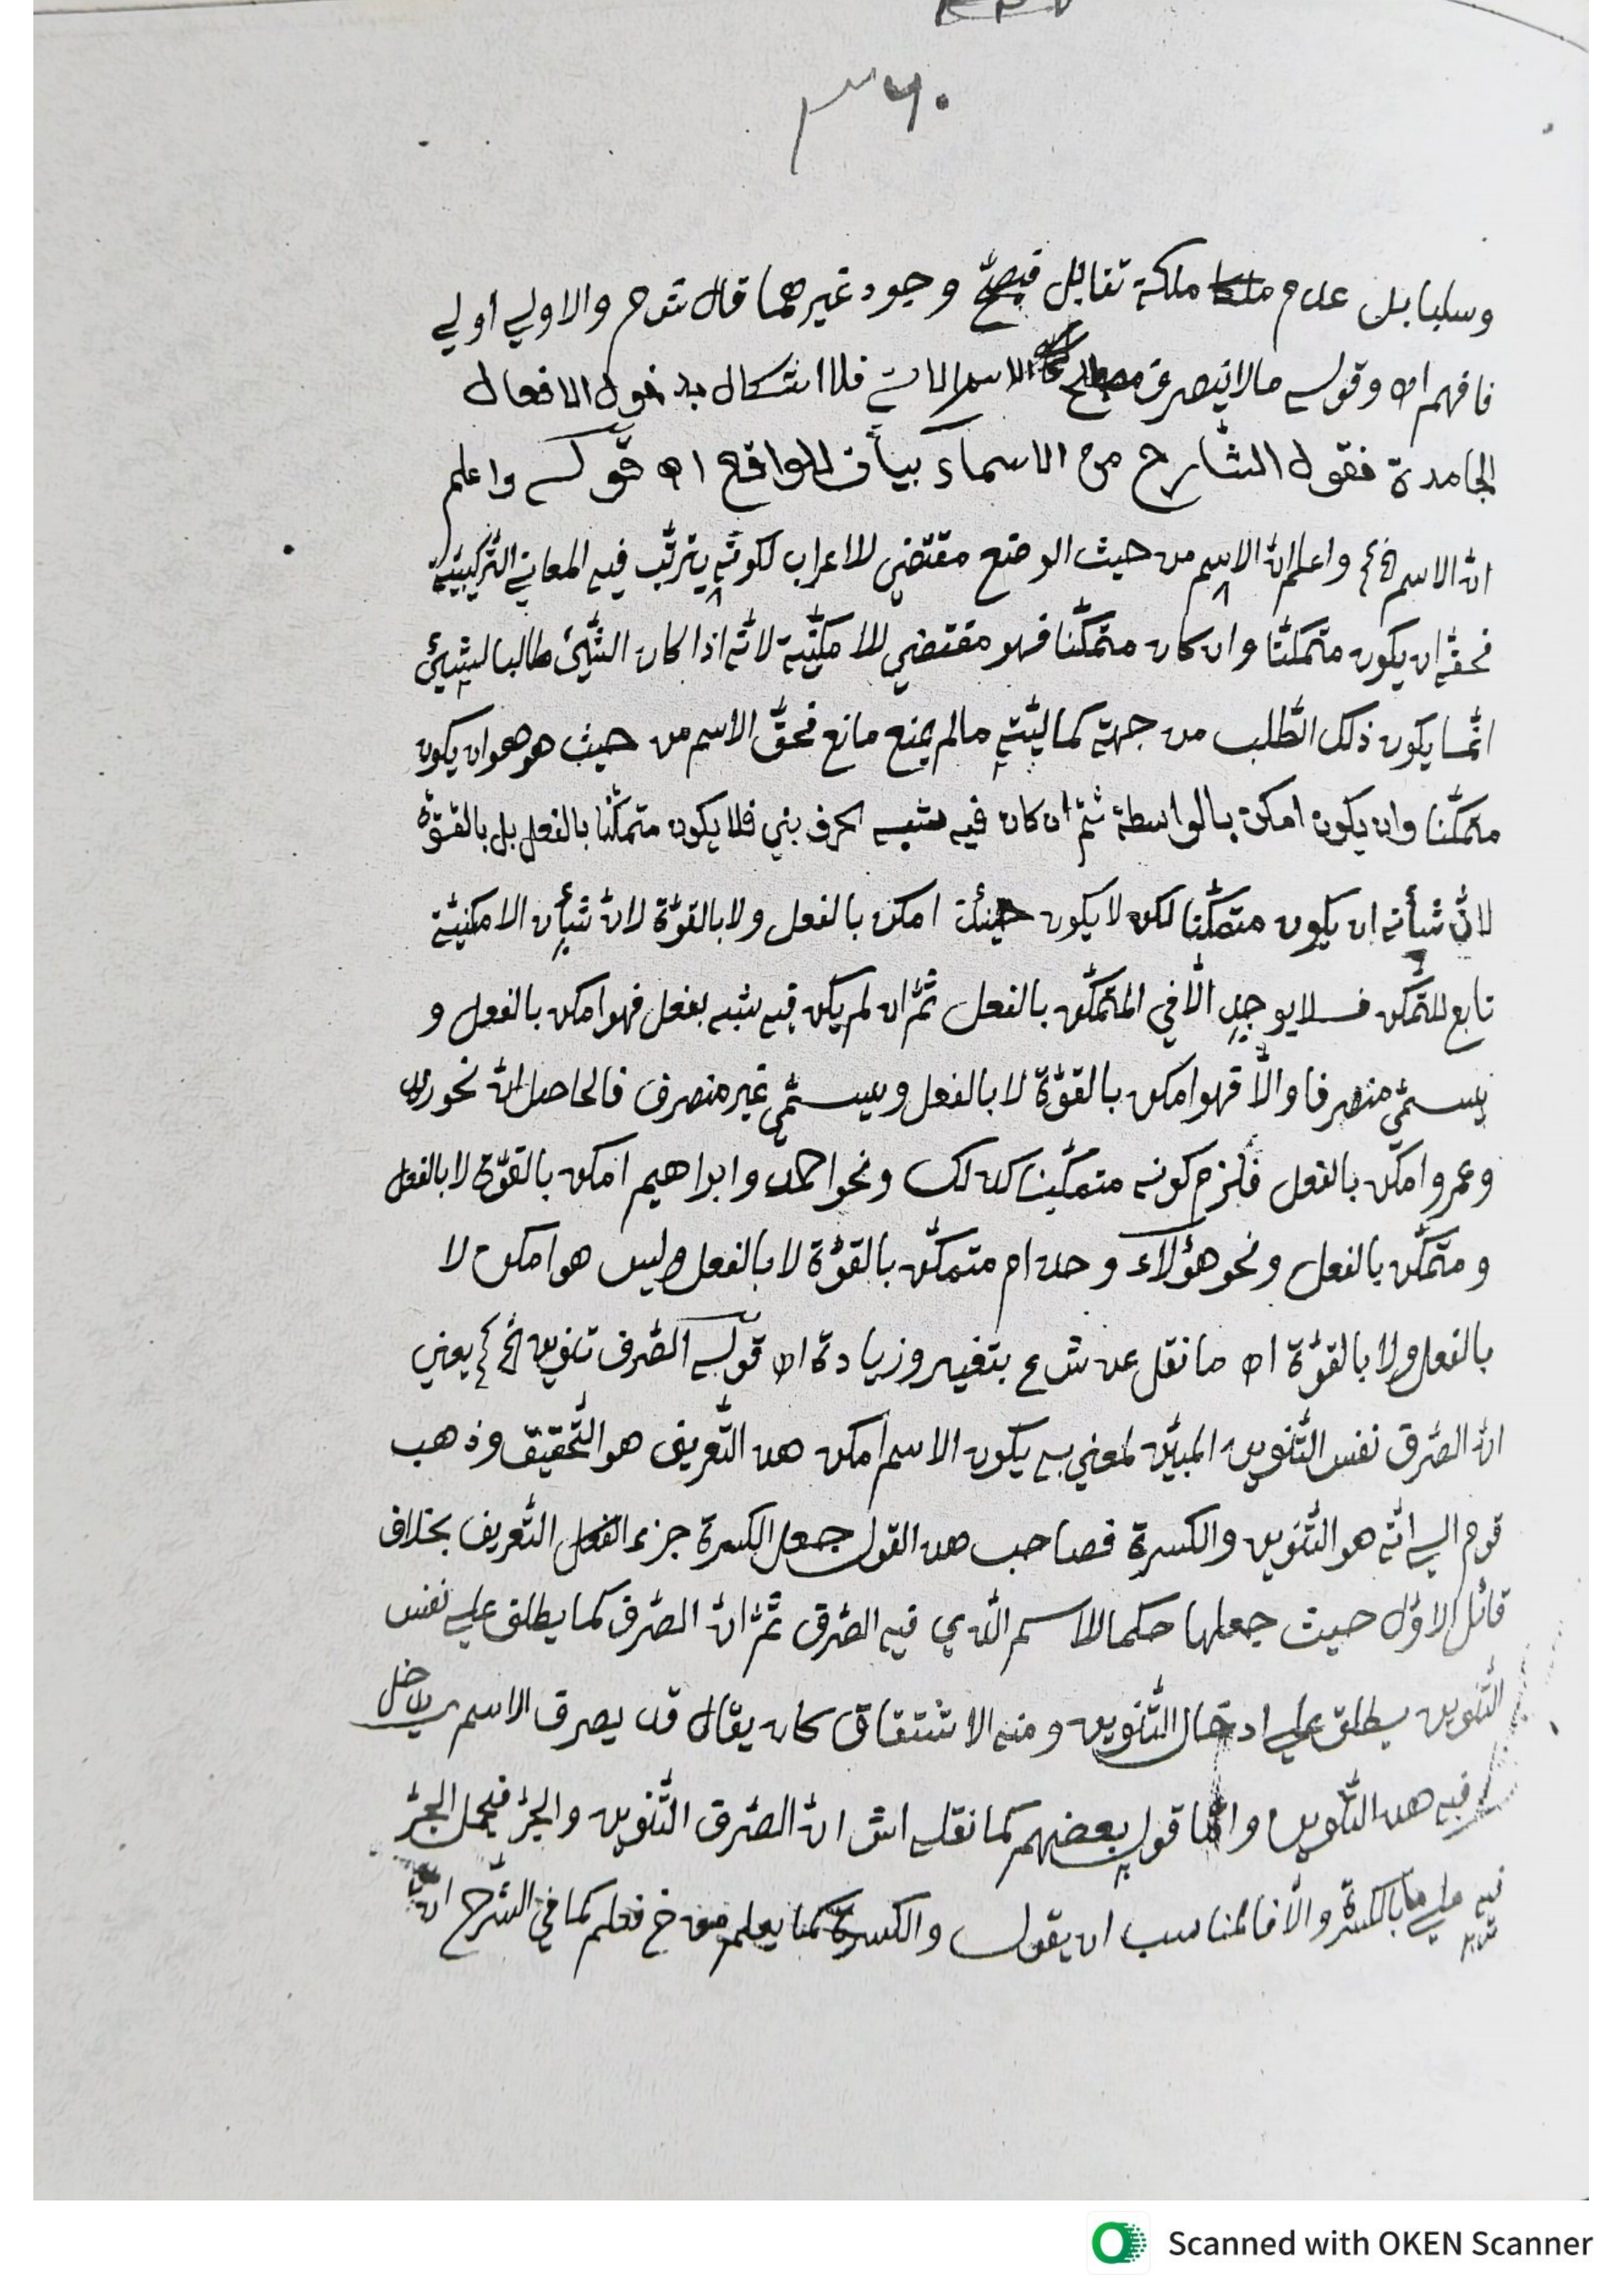 ٣٦٠
وسلبا بل عدم ملكة تقابل فيصح وجود غيرهما قال شرح والاولي اولي
فافهم اه وقوله مالا ينصرف الاسم الاتي فلا اشكال بدخول الافعال
الجامدة فقول الشارح من الاسماء بيان للواقع اه قوله واعلم
انّ الاسم الخ واعلم انّ الاسم من حيث الوضع مقتضي للاعراب لكونه يترتّب فيه المعاني التّركيبيّة
فحقّه ان يكون متمكّنا وان كان متمكّنا فهو مقتضي للامكنيّة لانّه اذا كان الشّيئ طالبا لشيئ
انّما يكون ذلك الطّلب من جهة كماليّته مالم يمنع مانع فحقّ الاسم من حيث هو هو ان يكون
متمكّنا وان يكون امكن بالواسطة ثمّ ان كان فيه شبه الحرف بني فلا يكون متمكّنا بالفعل بل بالقوّة
لانّ شأنه ان يكون متمكّنا لكن لا يكون حينئذ امكن بالفعل ولا بالقوّة لانّ شأن الامكنيّة
تابع للتّمكّن فلا يوجد الّا في المتمكّن بالفعل ثمّ ان لم يكن فيه شبه بفعل فهو امكن بالفعل و
يسمّي منصرفا والّا فهو امكن بالقوّة لا بالفعل ويسمّي غير منصرف فالحاصل انّ نحو زيد
وعمرو امكن بالفعل فلزم كونه متمكّنا كذلك ونحو احمد وابراهيم امكن بالقوّة لا بالفعل
ومتمكّن بالفعل ونحو هؤلاء وحذام متمكّن بالقوّة لا بالفعل وليس هو امكن لا
بالفعل ولا بالقوّة اه ما نقل عن ش ع بتغيير وزيادة اه قوله الصّرف تنوين الخ يعني
انّ الصّرف نفس التّنوين المبيّن لمعني به يكون الاسم امكن هذا التّعريف هو التّحقيق وذهب
قوم الي انّه هو التّنوين والكسرة فصاحب هذا القول جعل الكسرة جزء التّعريف بخلاف
قائل الاوّل حيث جعلها حكما للاسم الّذي فيه الصّرف ثمّ انّ الصّرف كما يطلق علي نفس
التّنوين يطلق علي ادخال التّنوين ومنه الاشتقاق كان يقال قد يصرف الاسم يدخل
فيه هذا التّنوين وامّا قول بعضهم كما نقله اش انّ الصّرف التّنوين والجرّ فيحمل الجرّ
فيه علي ما بالكسرة والّا فالمناسب ان يقول والكسرة كما يعلم من خ فعلم كما في الشّرح انّ
Scanned with OKEN Scanner